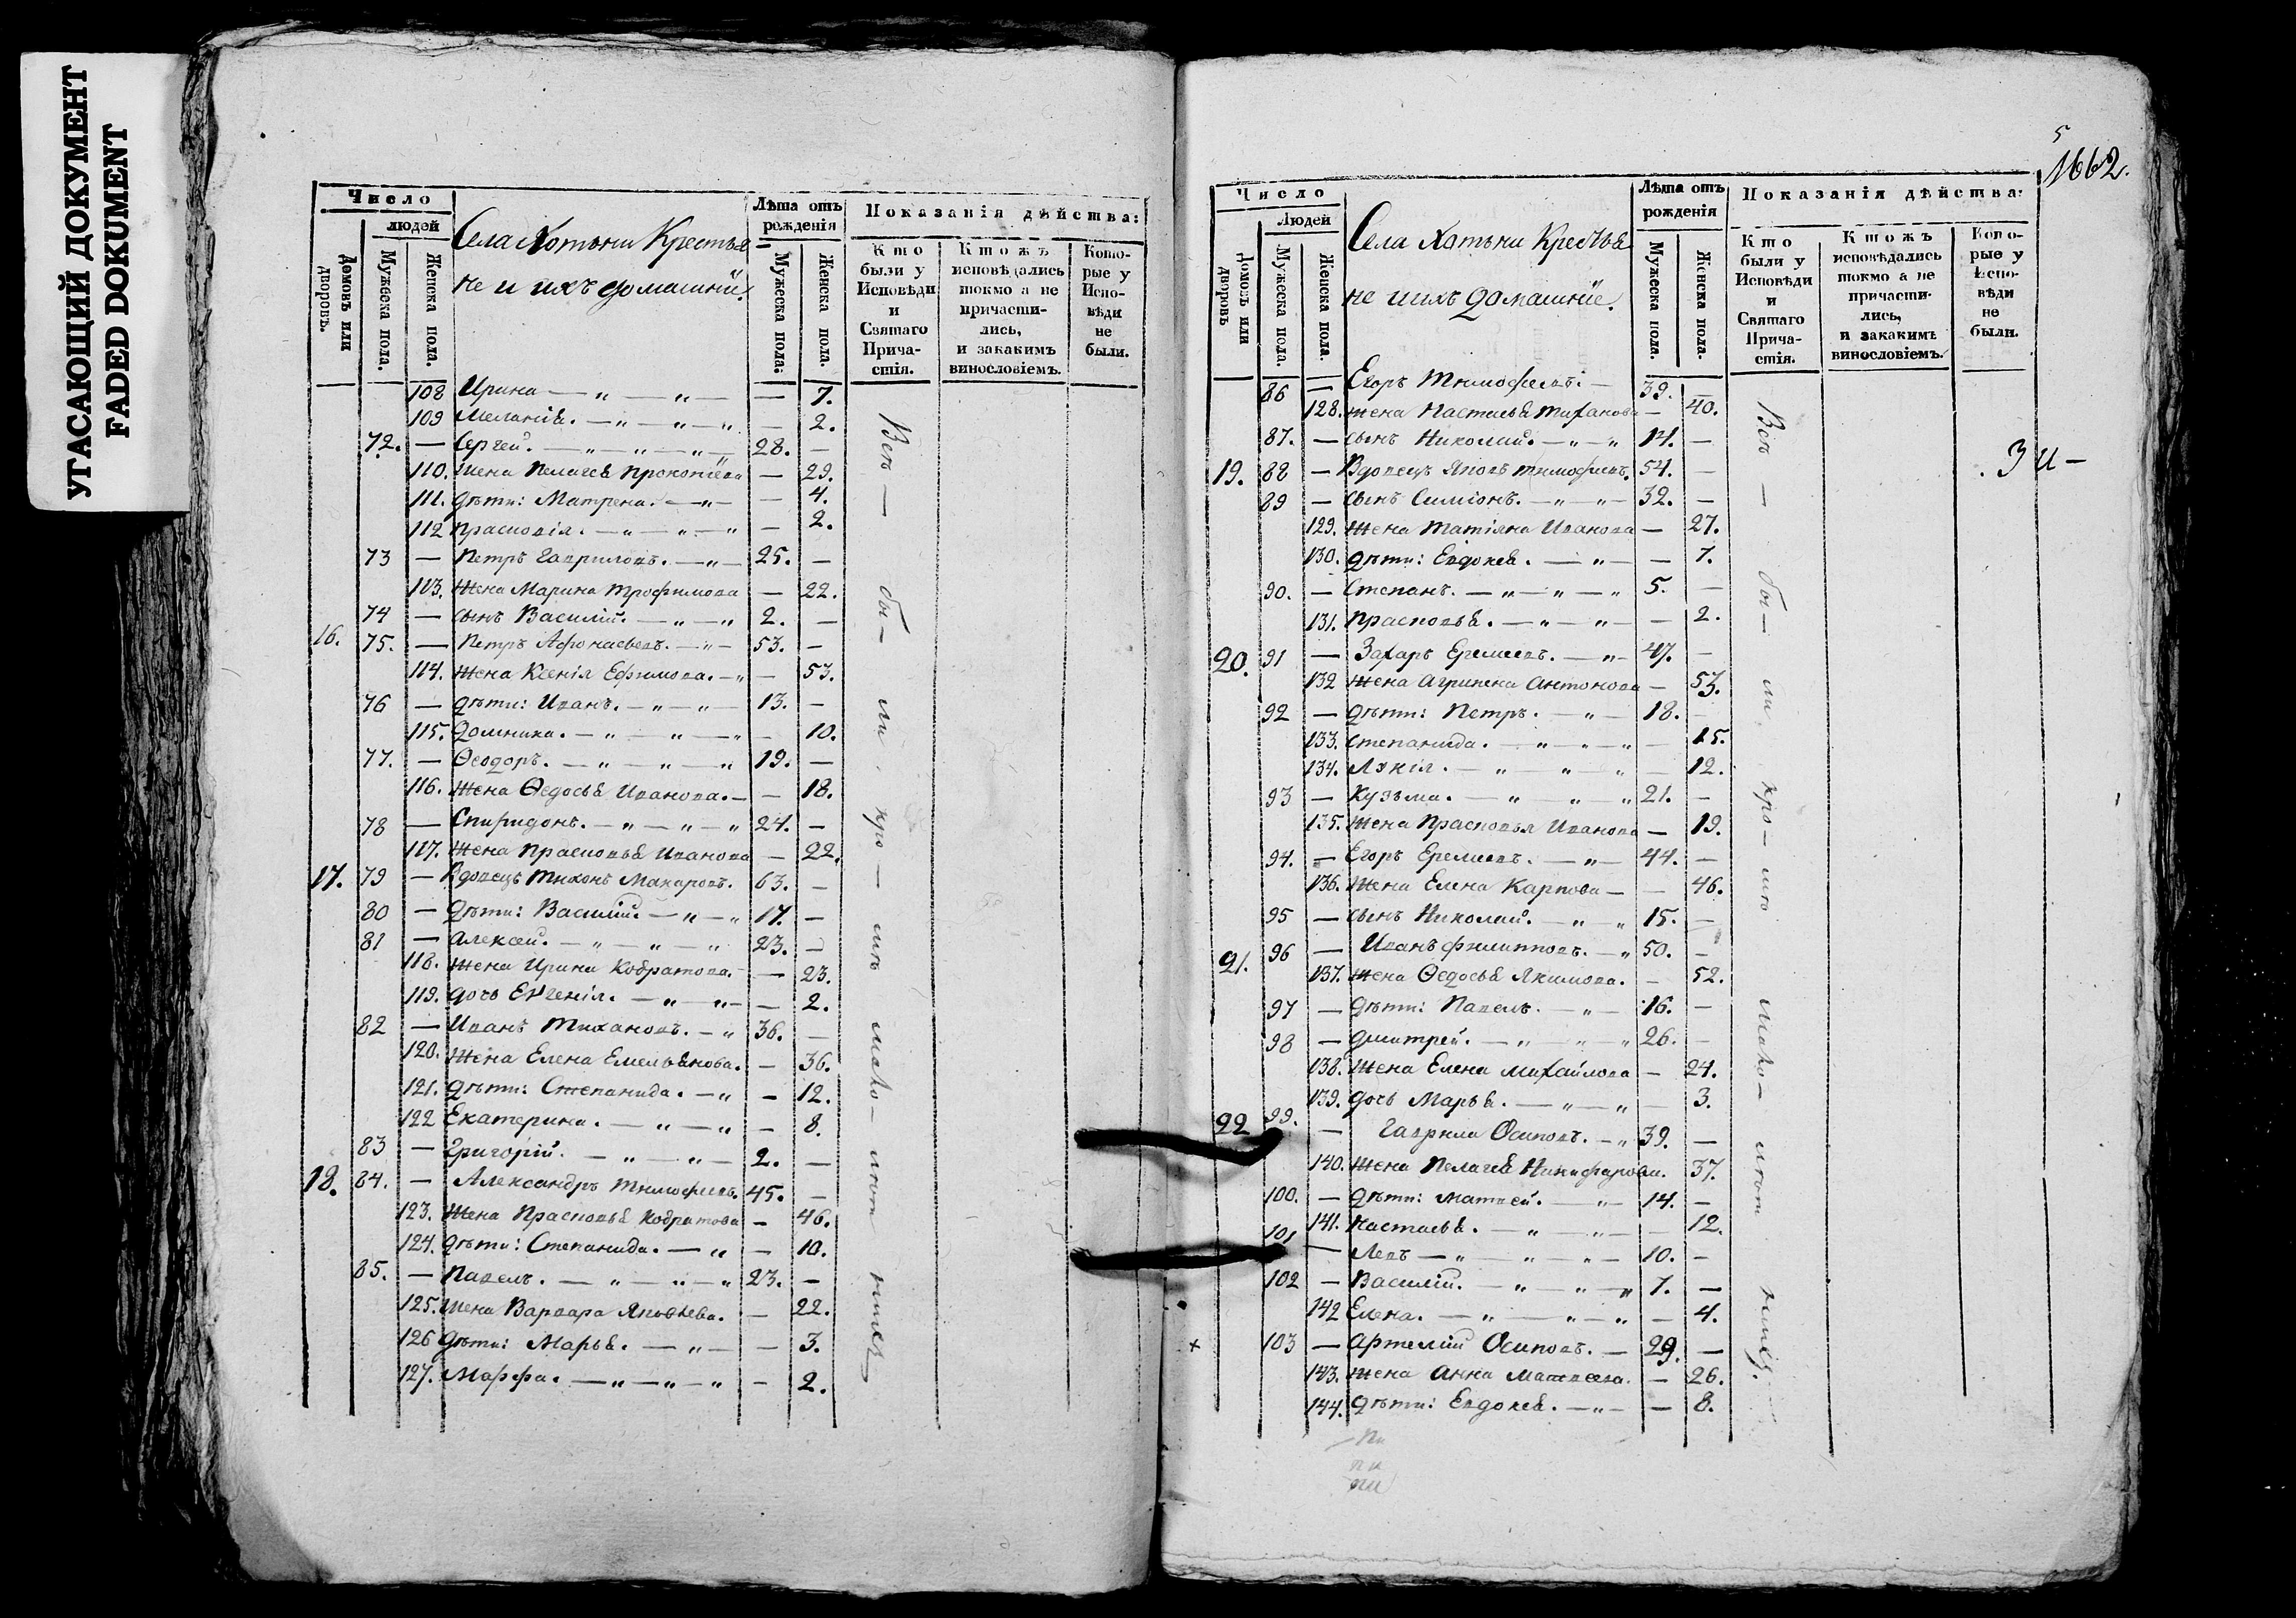 УГАСАЮЩИЙ ДОКУМЕНТ
FADED DOKUMENT
Число
людей
Домовъ или дворовъ.
Мужеска пола.
Женска пола.
Села Хотьни Крестья=
не и ихъ домашніе.
Лѣта отъ рожденія
Мужеска пола.
Женска пола.
Показанія дѣйства:
Кто были у Исповѣди и Святаго Причастія.
Ктожъ исповѣдались токмо а не причастились, и закакимъ винословіемъ.
Которые у Исповѣди не были.
108 Ирина — „ — „ — — 7.
109 Меланіѣ. — „ — „ — „ — 2.
72. — Сергей. — „ — „ — „ — 28. —
110. Жена Пелагеѣ Прокопіева — 29.
111. дѣти: Матрена. — „ — — 4.
112 Прасковія. — „ — „ — „ — 2.
73 — Петръ Гавриловъ. — „ — 25. —
113. Жена Марина Трофимова — 22.
74 — сынъ Василій. — „ — „ 2. —
16. 75. — Петръ Афонасьевъ. — „ — 53. —
114. Жена Ксенія Ефимова. — „ — 53.
76 — дѣти: Иванъ. — „ — „ — 13. —
115. Домника. — „ — „ — „ — 10.
77. — Ѳеодоръ. — „ — „ — „ 19. —
116. Жена Ѳедосьѣ Иванова. — — 18.
78 — Спиридонъ. — „ — „ — „ 24. —
117. Жена Прасковьѣ Иванова — 22.
17. 79 — Вдовецъ Тихонъ Макаровъ. 63. —
80 — дѣти: Василій. — „ — „ 17. —
81 — Алексей. — „ — „ — „ 23. —
118. Жена Ирина Кодратова. — 23.
119. дочь Евгенія. — „ — „ — — 2.
82 — Иванъ Тихановъ. — „ 36. —
120. Жена Елена Емельѣнова. — 36.
121. дѣти: Степанида. — „ — 12.
122 Екатерина. — „ — „ — 8.
83 — Григорій. — „ — „ — 2. —
18. 84. — Александръ Тимофеевъ. 45. —
123. Жена Прасковьѣ Кодратова — 46.
124. дѣти: Степанида. — „ — 10.
85. — Павелъ. — „ — „ — „ 23. —
125. Жена Варвара Яковлева. — 22.
126 дѣти: Марьѣ. — „ — — 3.
127. Марфа. — „ — „ — „ — 2.
5
1662.
Число
Людей
Домовъ или дворовъ
Мужеска пола.
Женска пола.
Села Хотьни Крестьѣ
не и ихъ домашніе.
Лѣта отъ рожденія
Мужеска пола.
Женска пола.
Показанія дѣйства:
Кто были у Исповѣди и Святаго Причастія.
Ктожъ исповѣдались токмо а не причастились, и закакимъ винословіемъ.
Которые у Исповѣди не были.
86 — Егоръ Тимофеевъ: — 39. —
128. Жена Настасьѣ Тиханова — 40.
87. — сынъ Николай. — „ — „ 14. —
19. 88 — Вдовецъ Яковъ Тимофеевъ. 54. —
89 — сынъ Симіонъ. — „ — „ — 32. —
129. Жена Татіяна Иванова — 27.
130. дѣти: Евдокеѣ. — „ — — 7.
90. — Степанъ. — „ — „ — „ 5. —
131. Прасковьѣ. — „ — „ — — 2.
20. 91 — Захаръ Еремеевъ. — „ — 47. —
132 Жена Агрипена Антонова — 53.
92 — дѣти: Петръ. — „ — 18. —
133. Степанида. — „ — „ — „ — 15.
134. Лукія. — „ — „ — „ — 12.
93 — Кузьма. — „ — „ — „ 21. —
135. Жена Прасковья Иванова — 19.
94. — Егоръ Еремеевъ. — „ — 44. —
136. Жена Елена Карпова — — 46.
95 — сынъ Николай. — „ — „ 15. —
21. 96 — Иванъ Филипповъ. — „ 50. —
137. Жена Ѳедосьѣ Якимова. — 52.
97 — дѣти: Павелъ. — „ — 16. —
98 — Дмитрей. — „ — „ — „ 26. —
138. Жена Елена Михайлова — 24.
139. дочь Марьѣ. — „ — „ — 3.
22 99. — Гаврила Осиповъ. — „ 39. —
140. Жена Пелагеѣ Никифорова. 37.
100. — дѣти: Матвей. — „ — 14. —
141. Настасьѣ. — „ — „ — — 12.
101 — Левъ — „ — „ — „ — 10. —
102 — Василій. — „ — „ — „ 7. —
142 Елена. — „ — „ — „ — 4.
× 103 — Артемій Осиповъ. — 29. —
143. Жена Анна Матвеева. — 26.
144. дѣти: Евдокеѣ. — „ — — 8.